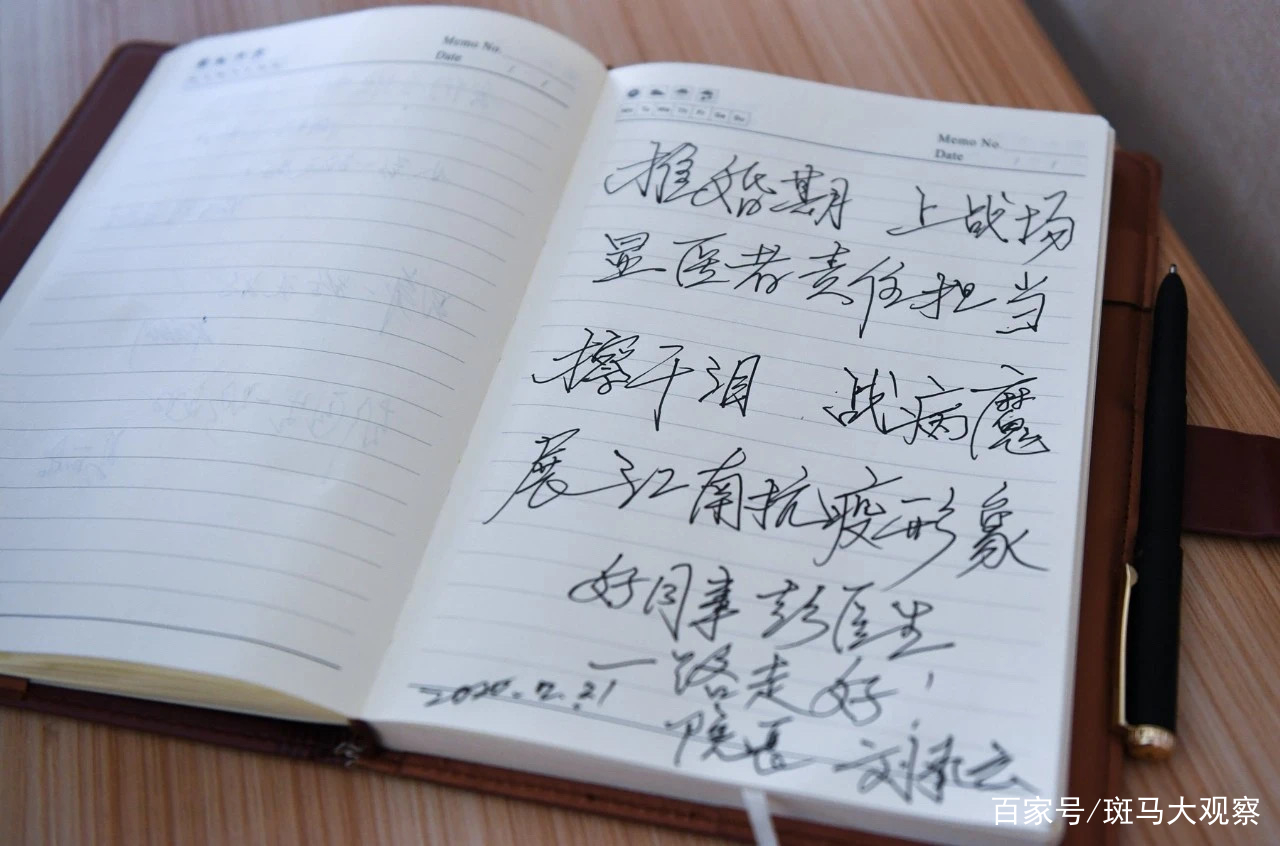 Memo No.
Date
Memo No.
Date
推婚期 上战场
显医者责任担当
擦干泪 战病魔
展江南抗疫形象
好同事彭医生
一路走好！
2020.2.21
院长 刘
云
百家号/斑马大观察